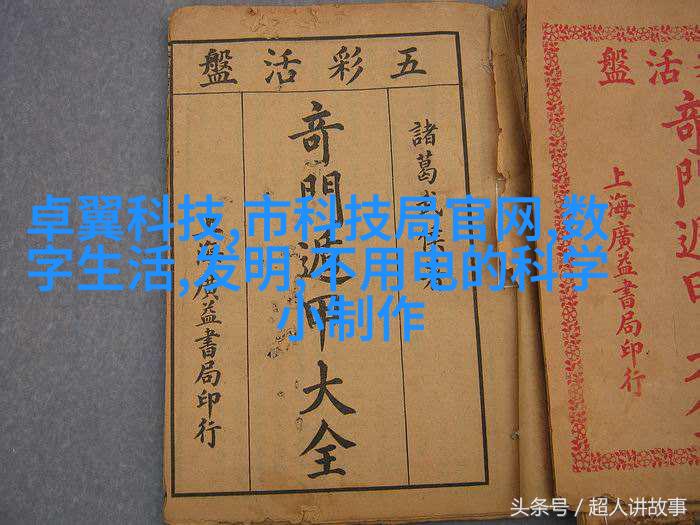 五彩活盤
諸葛武侯
奇門遁甲大全
上海廣益書局印行
卓翼科技,市科技局官网,数
字生活,发明,不用电的科学
小制作
活盤
奇門遁甲大全
上海廣益書局印行
头条号 / 超人讲故事